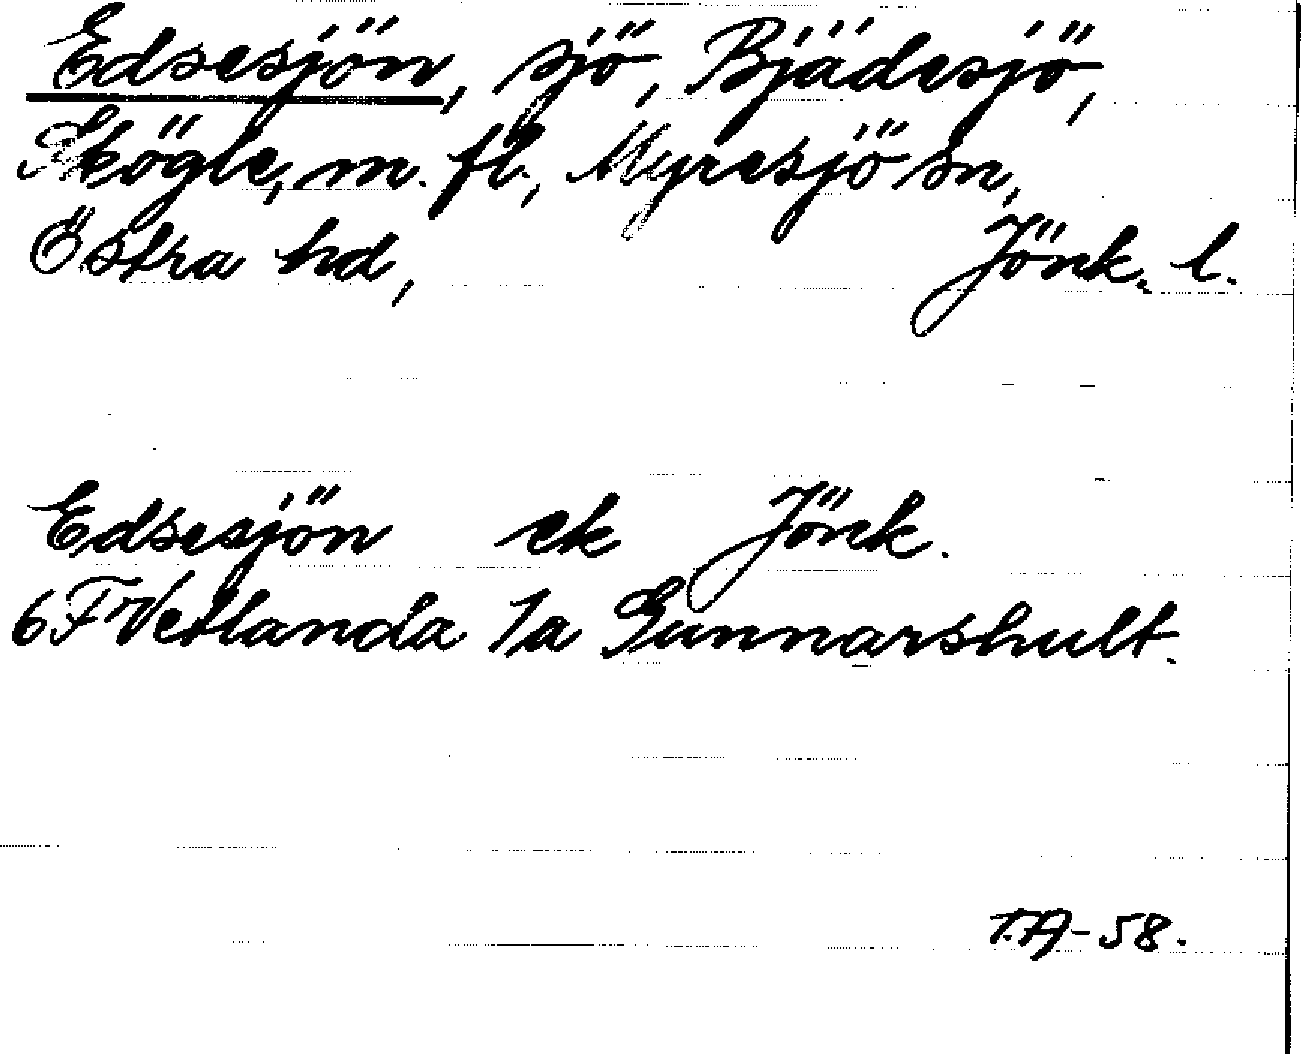 Edsesjön, sjö, Bjädesjö,
Skögle, m. fl., Myresjö sn,
Östra hd, Jönk. l.
Edsesjön ek Jönk.
6 F Vetlanda 1a Gunnarshult.
T.A-58.